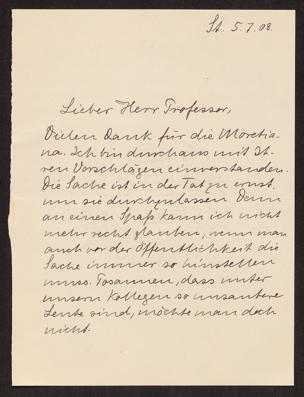 St. 5.7.08.
Lieber Herr Professor,
Vielen Dank für die Moretia-
na. Ich bin durchaus mit Ih-
ren Vorschlägen einverstanden.
Die Sache ist in der Tat zu ernst,
um sie durchzulassen. Denn
an einen Spaß kann ich nicht
mehr recht glauben, wenn man
auch vor der Öffentlichkeit die
Sache immer so hinstellen
muss. Zusammen, dass unter
unsern Kollegen so unsaubere
Leute sind, möchte man doch
nicht.